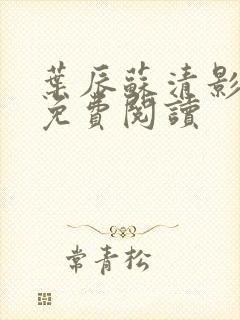 葉辰蘇清影
免費閱讀
常青松